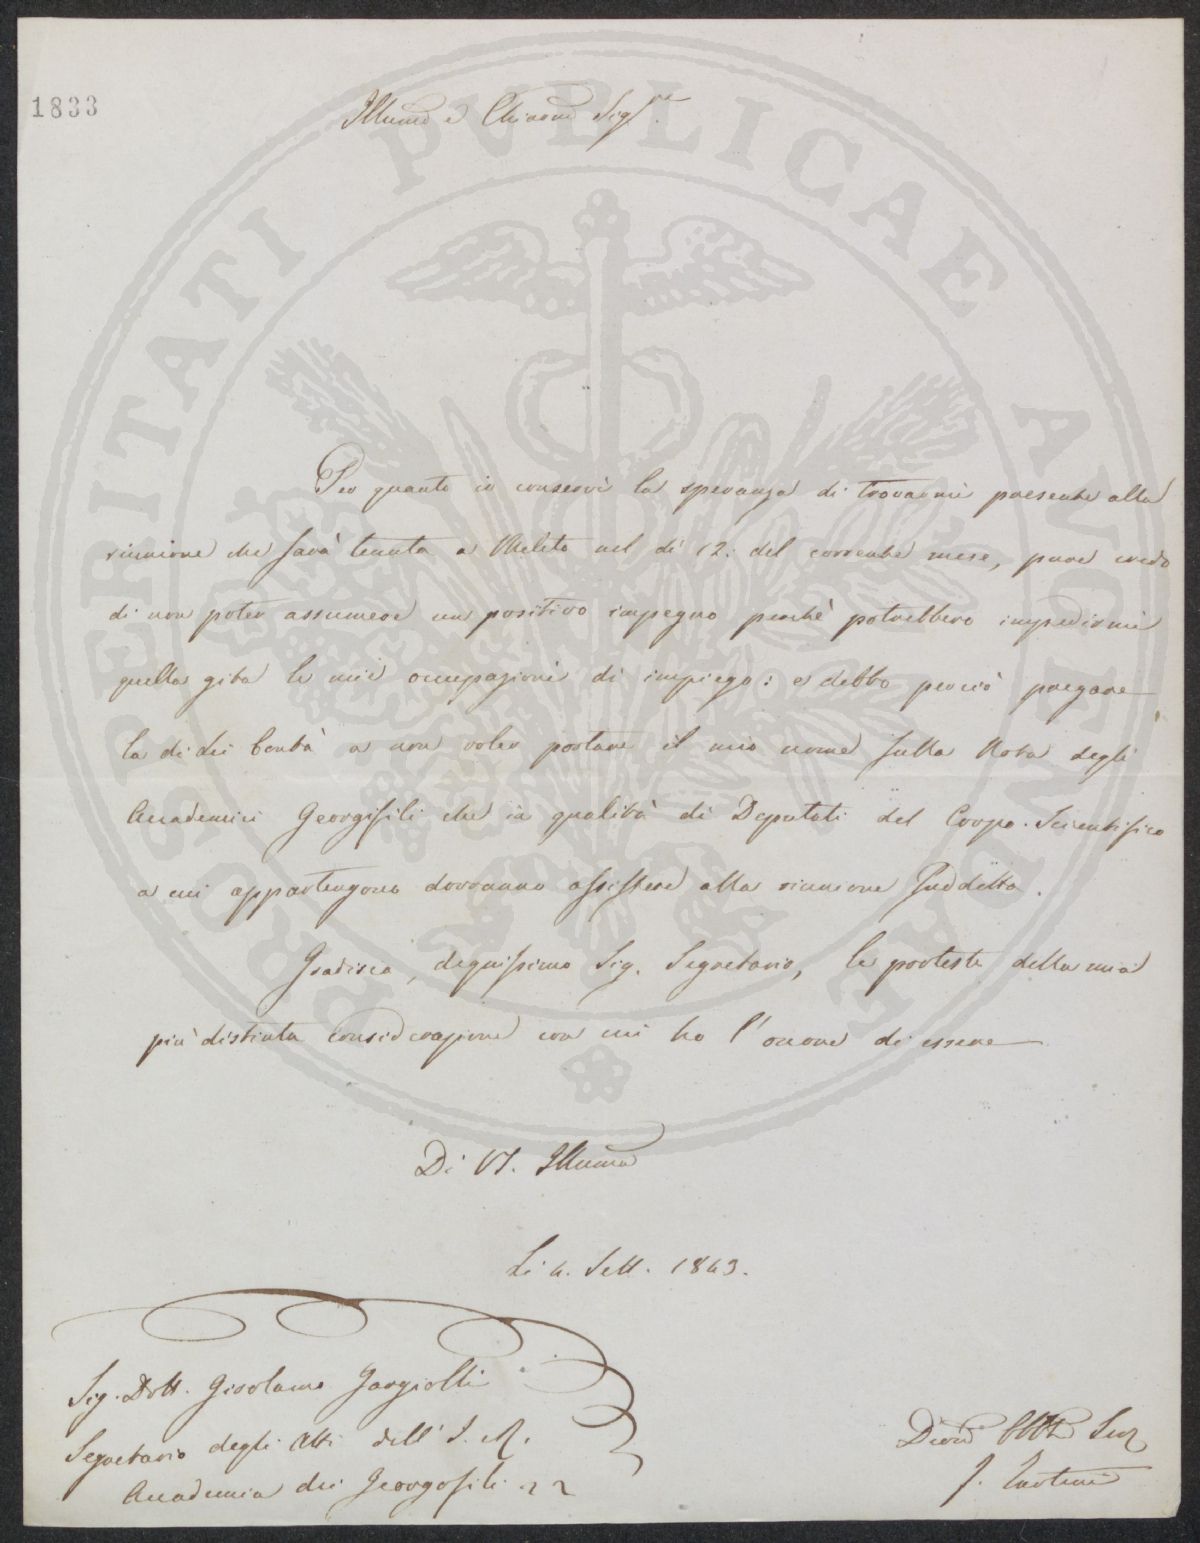 1833
Illmo e Chiarmo Sigre.
PROSPERITATI PUBLICAE AUGENDAE
Per quanto io conservi la speranza di trovarmi presente alla
riunione che sarà tenuta a Meleto nel dì 12. del corrente mese, pure credo
di non poter assumere un positivo impegno perchè potrebbero impedirmi
quella gita le mie occupazioni di impiego: e debbo perciò pregare
la di Lei bontà a non voler portare il mio nome sulla Nota degli
Accademici Georgofili che in qualità di Deputati del Corpo Scientifico
a cui appartengono dovranno assistere alla riunione suddetta.
Gradisca, degnissimo Sig. Segretario, le proteste della mia
più distinta considerazione con cui ho l'onore di essere
Di VS. Illma
Li 4. Sett. 1843.
Sig. Dott. Girolamo Gargiolli
Segretario degli Atti dell' I. e R.
Accademia dei Georgofili
Devmo Obbmo Ser
F. Tartini